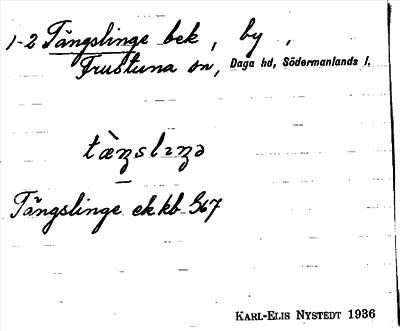 1-2 Tängslinge bek, by,
Frustuna sn, Daga hd, Södermanlands l.
tæ̀ŋslɪŋə
Tängslinge ek kb 567
KARL-ELIS NYSTEDT 1936